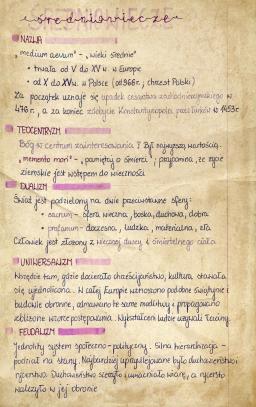 średniowiecze
NAZWA
"medium aevum" - "wieki średnie"
• trwała od V do XV w. w Europie
• od X do XV w. w Polsce (od 966r., chrzest Polski)
Za początek uznaje się upadek cesarstwa zachodniorzymskiego w
476 r., a za koniec zdobycie Konstantynopola przez Turków w 1453r
TEOCENTRYZM
Bóg w centrum zainteresowania ! Był najwyższą wartością.
"memento mori" - "pamiętaj o śmierci", przypomina, że życie
ziemskie jest wstępem do wieczności
DUALIZM
Świat jest podzielony na dwie przeciwstawne sfery:
• sacrum - sfera wieczna, boska, duchowa, dobra
• profanum - doczesna, ludzka, materialna, zła
Człowiek jest złożony z wiecznej duszy i śmiertelnego ciała
UNIWERSALIZM
Wszędzie tam, gdzie docierało chrześcijaństwo, kultura stawała
się ujednolicona. W całej Europie wznoszono podobne świątynie i
budowle obronne, odmawiano te same modlitwy i propagowano
zbliżone wzorce postępowania. Wykształceni ludzie używali łaciny.
FEUDALIZM
Jednolity system społeczno-polityczny. Silna hierarchizacja -
podział na stany. Najbardziej uprzywilejowane było duchowieństwo i
rycerstwo. Duchowieństwo szerzyło i umacniało wiarę, a rycerstwo
walczyło w jej obronie